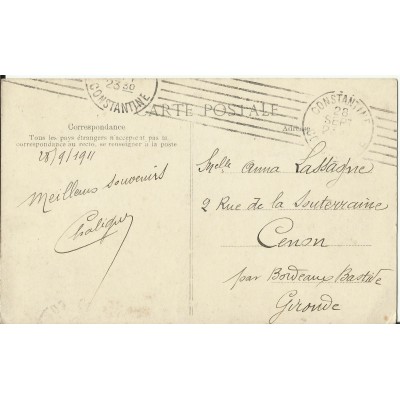 2330
CONSTANTINE
CARTE POSTALE
CONSTANTINE
28
SEPT
Correspondance
Adresse
Tous les pays étrangers n'acceptent pas la
correspondance au recto, se renseigner à la poste
28/9/1911
Meilleurs souvenirs
Melle Anna Lassagne
2 Rue de la Souterraine
Cenon
par Bordeaux Bastide
Gironde